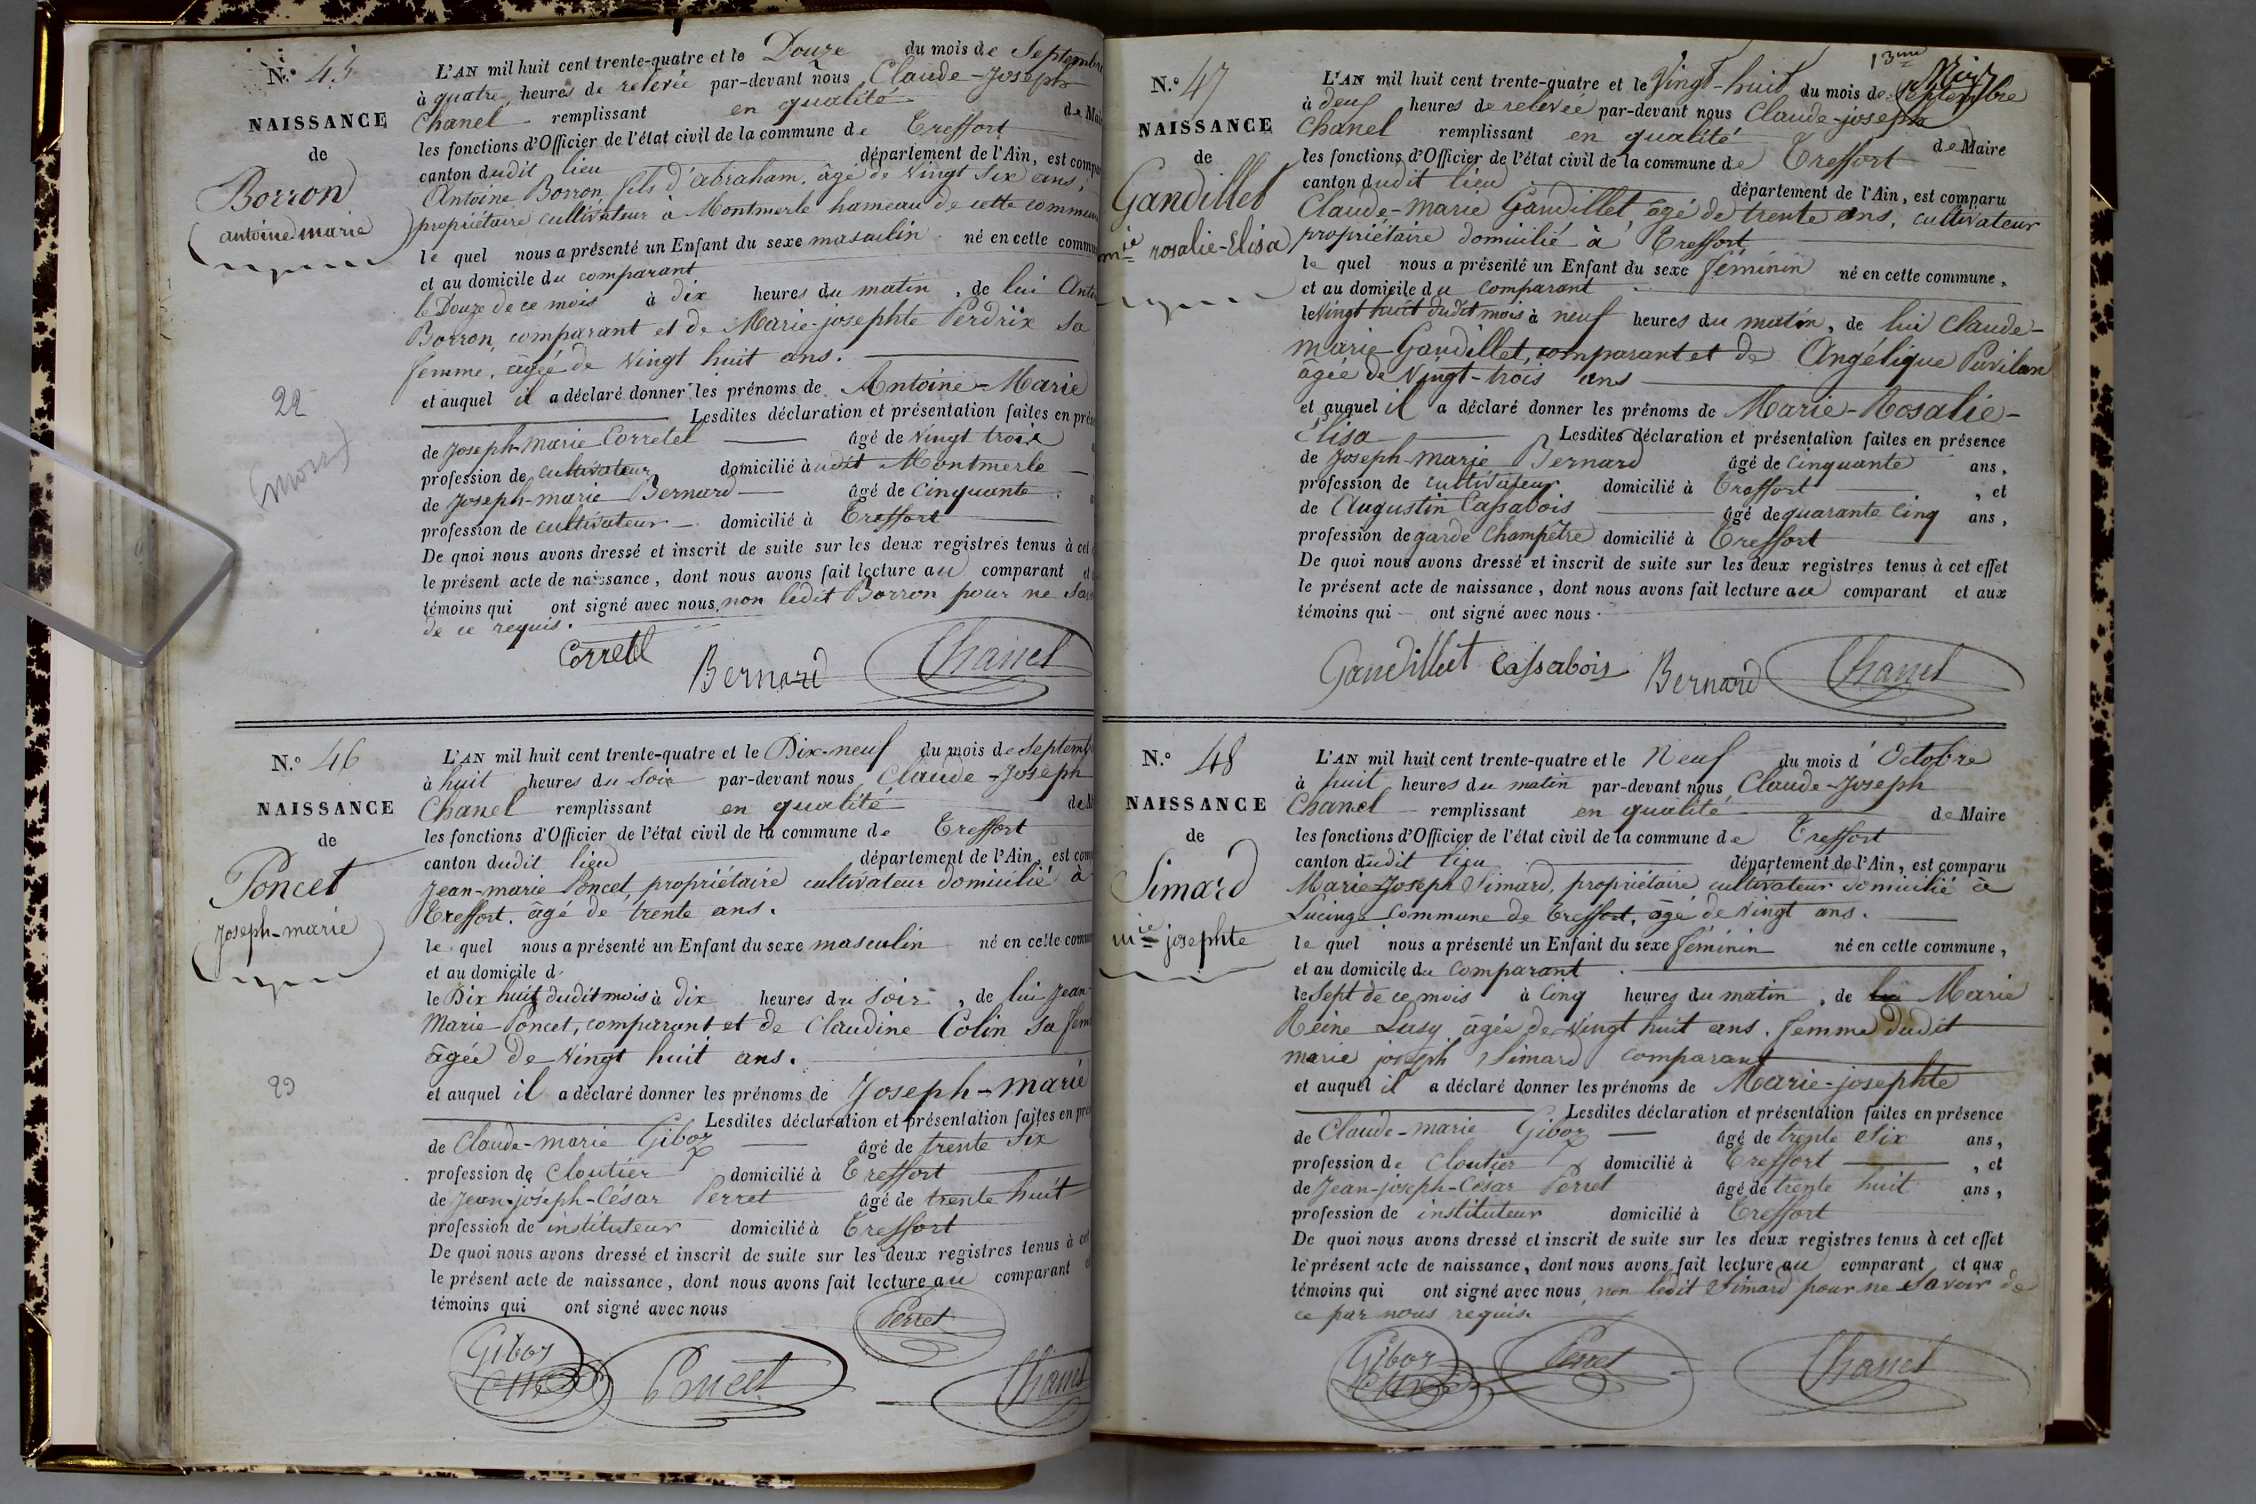 N.º 45
NAISSANCE
de
Borron
antoine marie
22
L'AN mil huit cent trente-quatre et le Douze du mois de Septembre
à quatre heures de relevée par-devant nous Claude-Joseph
Chanel remplissant en qualité de Mai
les fonctions d'Officier de l'état civil de la commune de Treffort
canton dudit lieu département de l'Ain, est compa
Antoine Borron fils d'abraham, âgé de Vingt Six ans,
propriétaire cultivateur à Montmerle hameau de cette commune
le quel nous a présenté un Enfant du sexe masculin né en cette commu
et au domicile du comparant
le Douze de ce mois à dix heures du matin, de lui Anto
Borron, comparant et de Marie-josephte Perdrix sa
femme, âgée de Vingt huit ans.
et auquel il a déclaré donner les prénoms de Antoine-Marie
Lesdites déclaration et présentation faites en prés
de Joseph-Marie Corretel âgé de Vingt trois
profession de cultivateur domicilié à udit Montmerle
de Joseph-marie Bernard âgé de Cinquante
profession de cultivateur domicilié à Treffort
De quoi nous avons dressé et inscrit de suite sur les deux registres tenus à cet
le présent acte de naissance, dont nous avons fait lecture au comparant et
témoins qui ont signé avec nous, non ledit Borron pour ne Sa
de ce requis.
Corretel Bernard Chanel
N.º 46
NAISSANCE
de
Poncet
Joseph-marie
L'AN mil huit cent trente-quatre et le Dix-neuf du mois de Septemb
à huit heures du Soir par-devant nous Claude-Joseph
Chanel remplissant en qualité de M
les fonctions d'Officier de l'état civil de la commune de Treffort
canton dudit lieu département de l'Ain, est com
Jean-marie Poncet, propriétaire cultivateur domicilié à
Treffort, âgé de trente ans.
le quel nous a présenté un Enfant du sexe masculin né en cette commu
et au domicile d
le Dix huit dudit mois à dix heures du Soir, de lui Jean-
Marie Poncet, comparant et de Claudine Colin sa fem
âgée de Vingt huit ans.
et auquel il a déclaré donner les prénoms de Joseph-marie
Lesdites déclaration et présentation faites en pré
de Claude-marie Giboz âgé de trente six
profession de Cloutier domicilié à Treffort
de Jean-joseph-César Perret âgé de trente huit
profession de instituteur domicilié à Treffort
De quoi nous avons dressé et inscrit de suite sur les deux registres tenus à cet
le présent acte de naissance, dont nous avons fait lecture au comparant
témoins qui ont signé avec nous
Perret
Giboz Poncet Chanel
13me
N.º 47
NAISSANCE
de
Gandillet
mie rosalie-Elisa
L'AN mil huit cent trente-quatre et le Vingt-huit du mois de Septembre
à deux heures de relevée par-devant nous Claude-joseph
Chanel remplissant en qualité de Maire
les fonctions d'Officier de l'état civil de la commune de Treffort
canton dudit lieu département de l'Ain, est comparu
Claude-Marie Gandillet, âgé de trente ans, cultivateur
propriétaire domicilié à Treffort
le quel nous a présenté un Enfant du sexe féminin né en cette commune,
et au domicile du comparant
le Vingt huit dudit mois à neuf heures du matin, de lui Claude-
marie Gandillet, comparant et de Angélique Puvilan
âgée de Vingt-trois ans
et auquel il a déclaré donner les prénoms de Marie-Rosalie-
Elisa Lesdites déclaration et présentation faites en présence
de Joseph-marie Bernard âgé de Cinquante ans,
profession de cultivateur domicilié à Treffort, et
de Augustin Cassabois âgé de quarante cinq ans,
profession de garde Champêtre domicilié à Treffort
De quoi nous avons dressé et inscrit de suite sur les deux registres tenus à cet effet
le présent acte de naissance, dont nous avons fait lecture au comparant et aux
témoins qui ont signé avec nous.
Gandillet Cassabois Bernard Chanel
N.º 48
NAISSANCE
de
Simard
mie josephte
L'AN mil huit cent trente-quatre et le Neuf du mois d'Octobre
à huit heures du matin par-devant nous Claude-Joseph
Chanel remplissant en qualité de Maire
les fonctions d'Officier de l'état civil de la commune de Treffort
canton dudit lieu département de l'Ain, est comparu
Marie Joseph Simard, propriétaire cultivateur domicilié à
Lucinge Commune de Treffort, âgé de Vingt ans.
le quel nous a présenté un Enfant du sexe féminin né en cette commune,
et au domicile du comparant
le Sept de ce mois à Cinq heures du matin, de lui Marie
Reine Lusy âgée de Vingt huit ans, femme dudit
marie joseph Simard comparant
et auquel il a déclaré donner les prénoms de Marie-josephte
Lesdites déclaration et présentation faites en présence
de Claude-marie Giboz âgé de trente Six ans,
profession de cloutier domicilié à Treffort, et
de Jean-joseph-César Perret âgé de trente huit ans,
profession de instituteur domicilié à Treffort
De quoi nous avons dressé et inscrit de suite sur les deux registres tenus à cet effet
le présent acte de naissance, dont nous avons fait lecture au comparant et aux
témoins qui ont signé avec nous, non ledit Simard pour ne Savoir de
ce par nous requis.
Giboz Perret Chanel